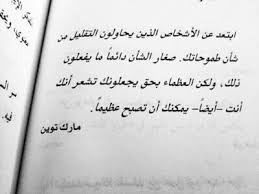 ابتعد عن الأشخاص الذين يحاولون التقليل من
شأن طموحاتك. صغار الشأن دائماً ما يفعلون
ذلك، ولكن العظماء بحق يجعلونك تشعر أنك
أنت –أيضاً– يمكنك أن تصبح عظيماً.
مارك توين